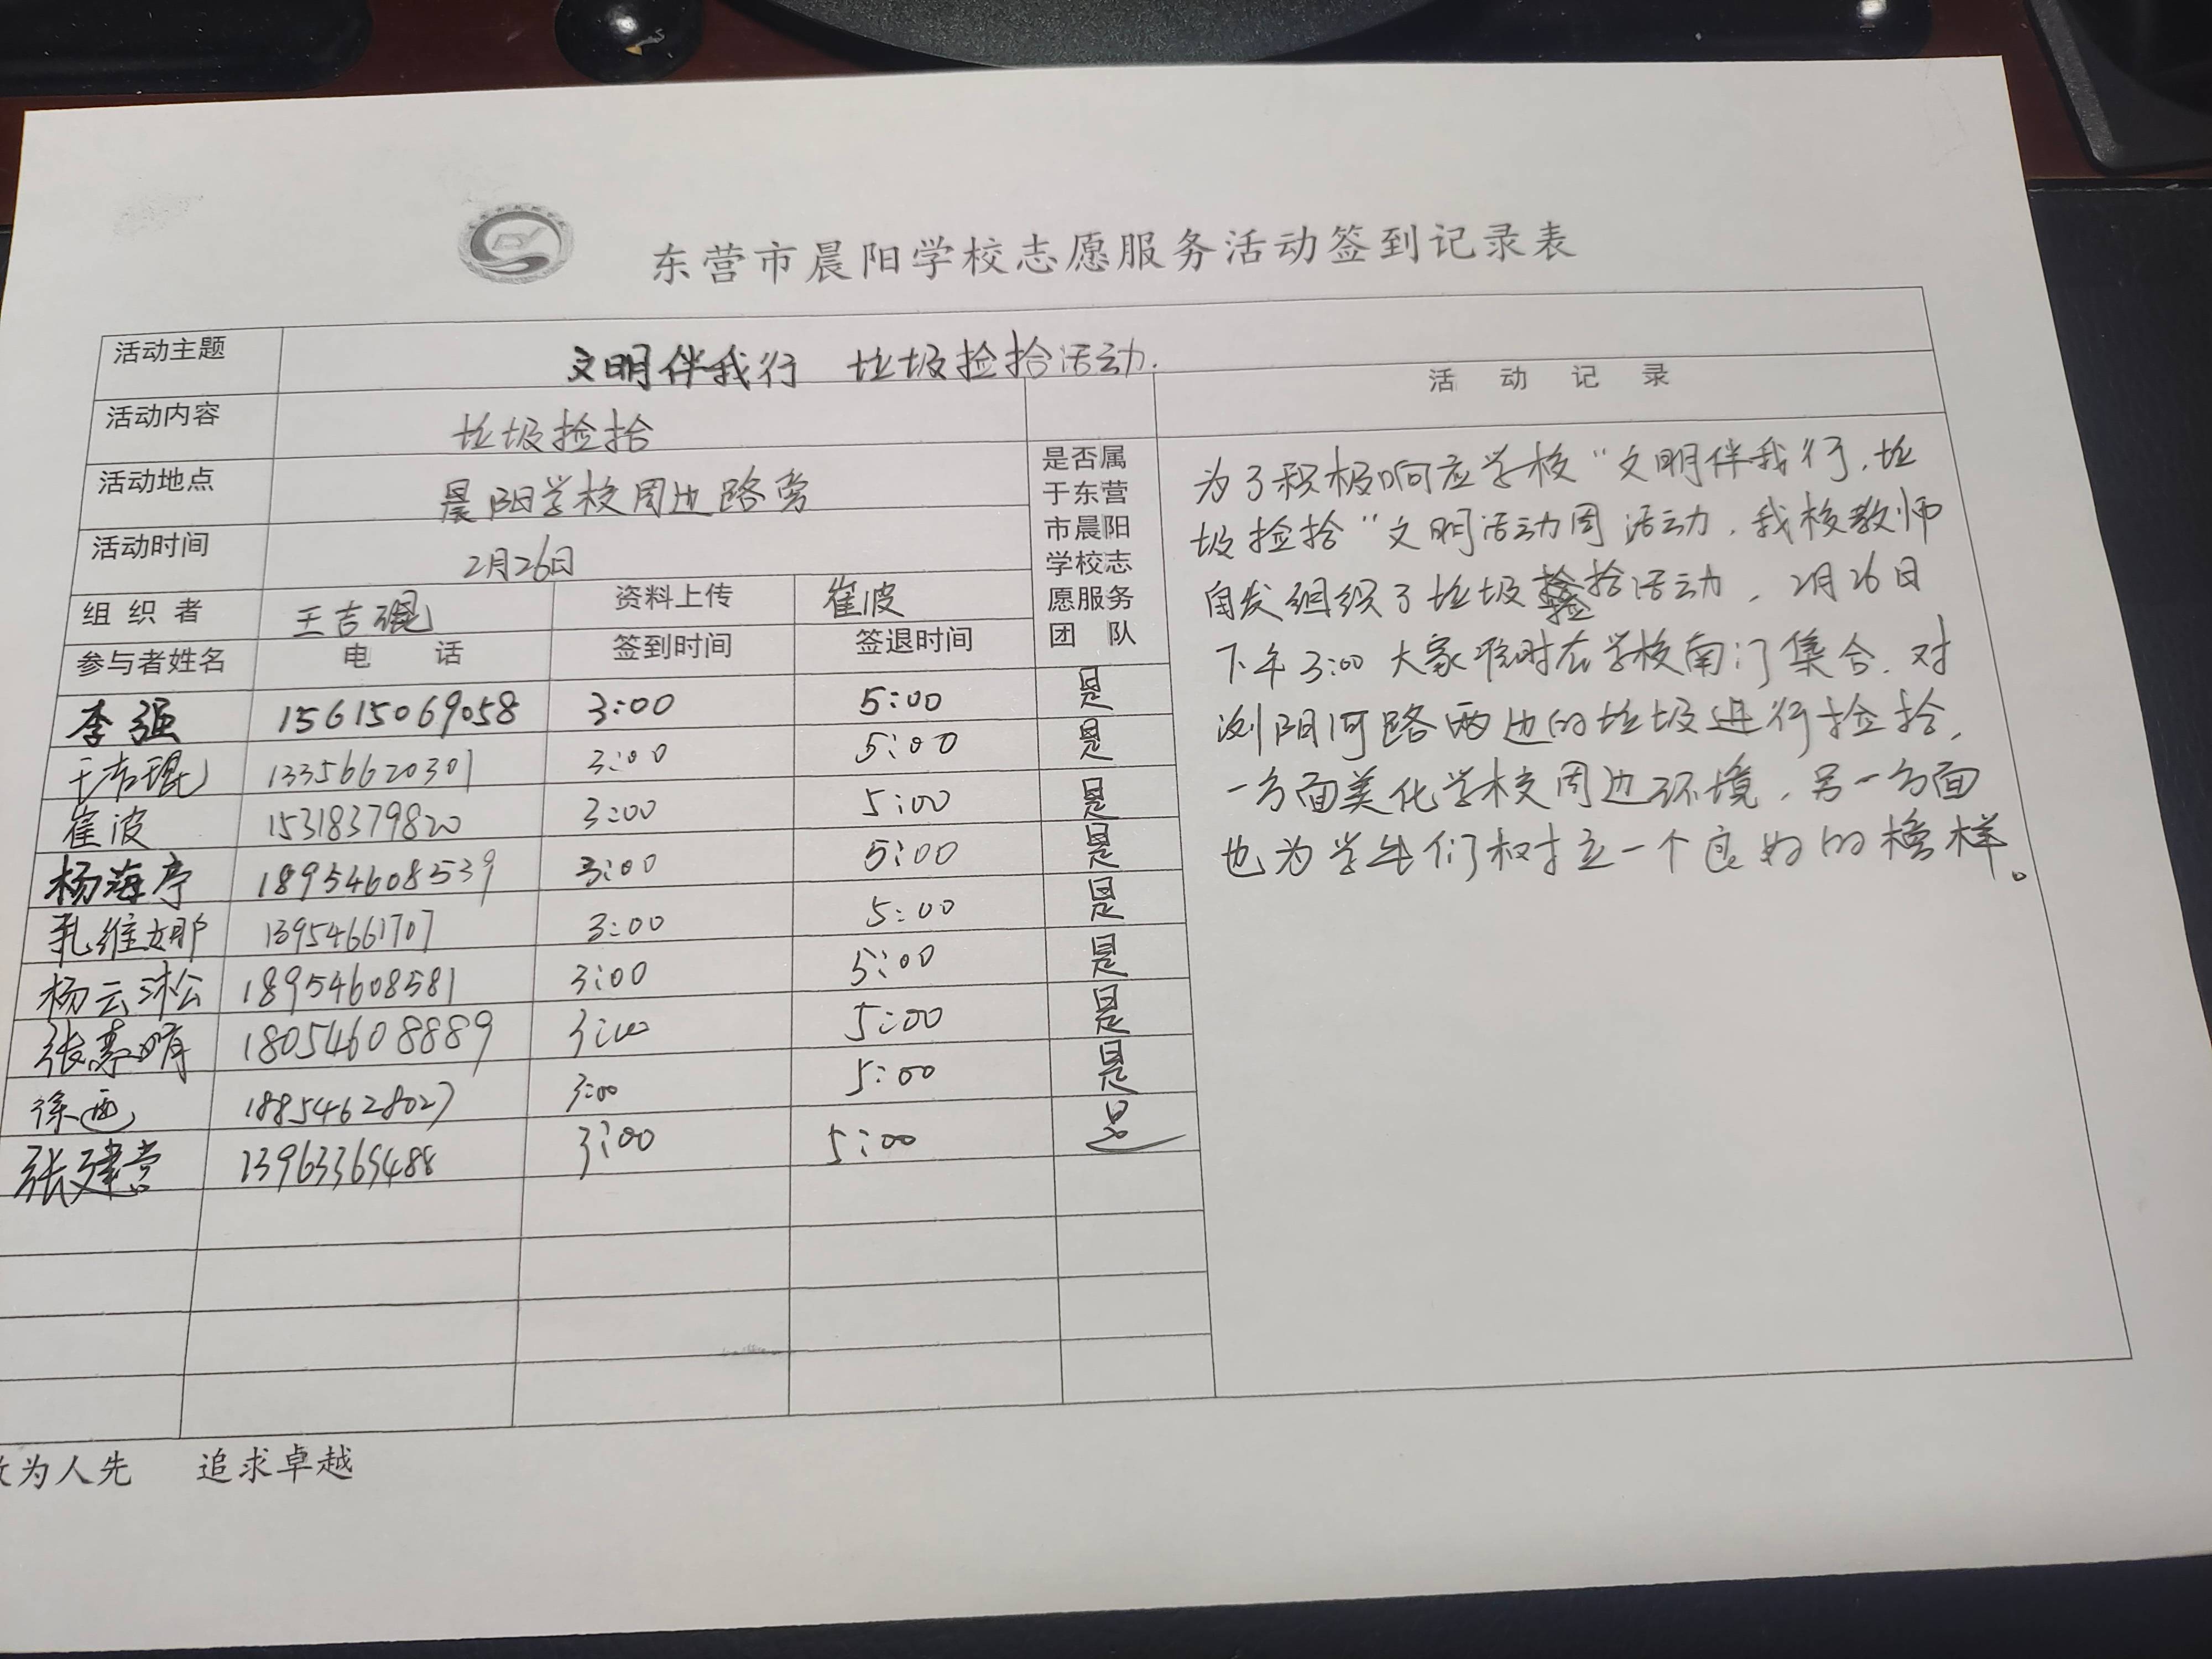 东营市晨阳学校志愿服务活动签到记录表
活动主题 文明伴我行 垃圾捡拾活动.
活动记录
活动内容 垃圾捡拾
活动地点 晨阳学校周边路旁
活动时间 2月26日
组织者 王吉琨 资料上传 崔波
参与者姓名 电话 签到时间 签退时间
是否属
于东营
市晨阳
学校志
愿服务
团队
李强 15615069058 3:00 5:00 是
王吉琨 13356620301 3:00 5:00 是
崔波 15318379820 3:00 5:00 是
杨海亭 18954608539 3:00 5:00 是
孔维娜 13954661707 3:00 5:00 是
杨云淞 18954608581 3:00 5:00 是
张 18054608889 3:00 5:00 是
徐 18854628027 3:00 5:00 是
张建营 13963369488 3:00 5:00 是
为了积极响应学校“文明伴我行,垃
圾捡拾”文明活动周活动,我校教师
自发组织了垃圾捡拾活动,2月26日
下午3:00大家准时在学校南门集合.对
浏阳河路两边的垃圾进行捡拾,
一方面美化学校周边环境,另一方面
也为学生们树立一个良好的榜样。
敢为人先 追求卓越